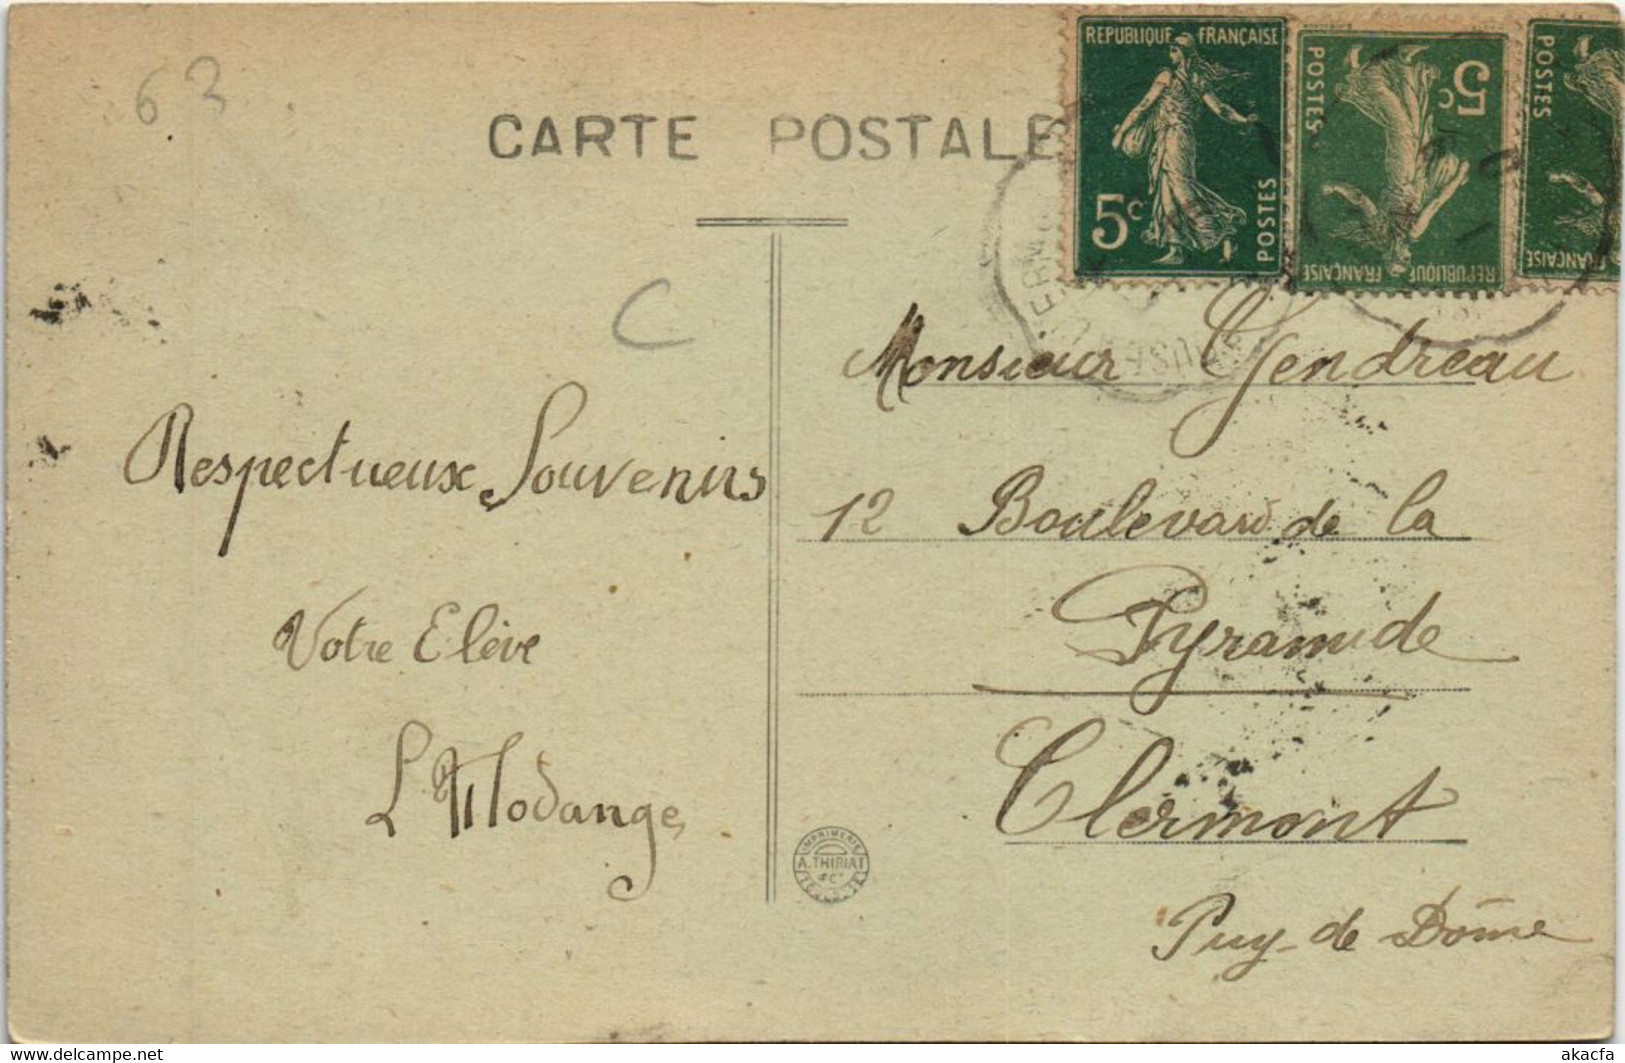 63
CARTE POSTALE
REPUBLIQUE FRANÇAISE
5c
POSTES
REPUBLIQUE FRANÇAISE
5c
POSTES
POSTES
FRANÇAISE
C
Respectueux Souvenirs
Votre Elève
Monsieur Gendreau
12 Boulevard de la
Pyramide
Clermont
Puy-de Dôme
IMPRIMERIE
A. THIRIAT
& Cie
TOULOUSE
www.delcampe.net
akacfa